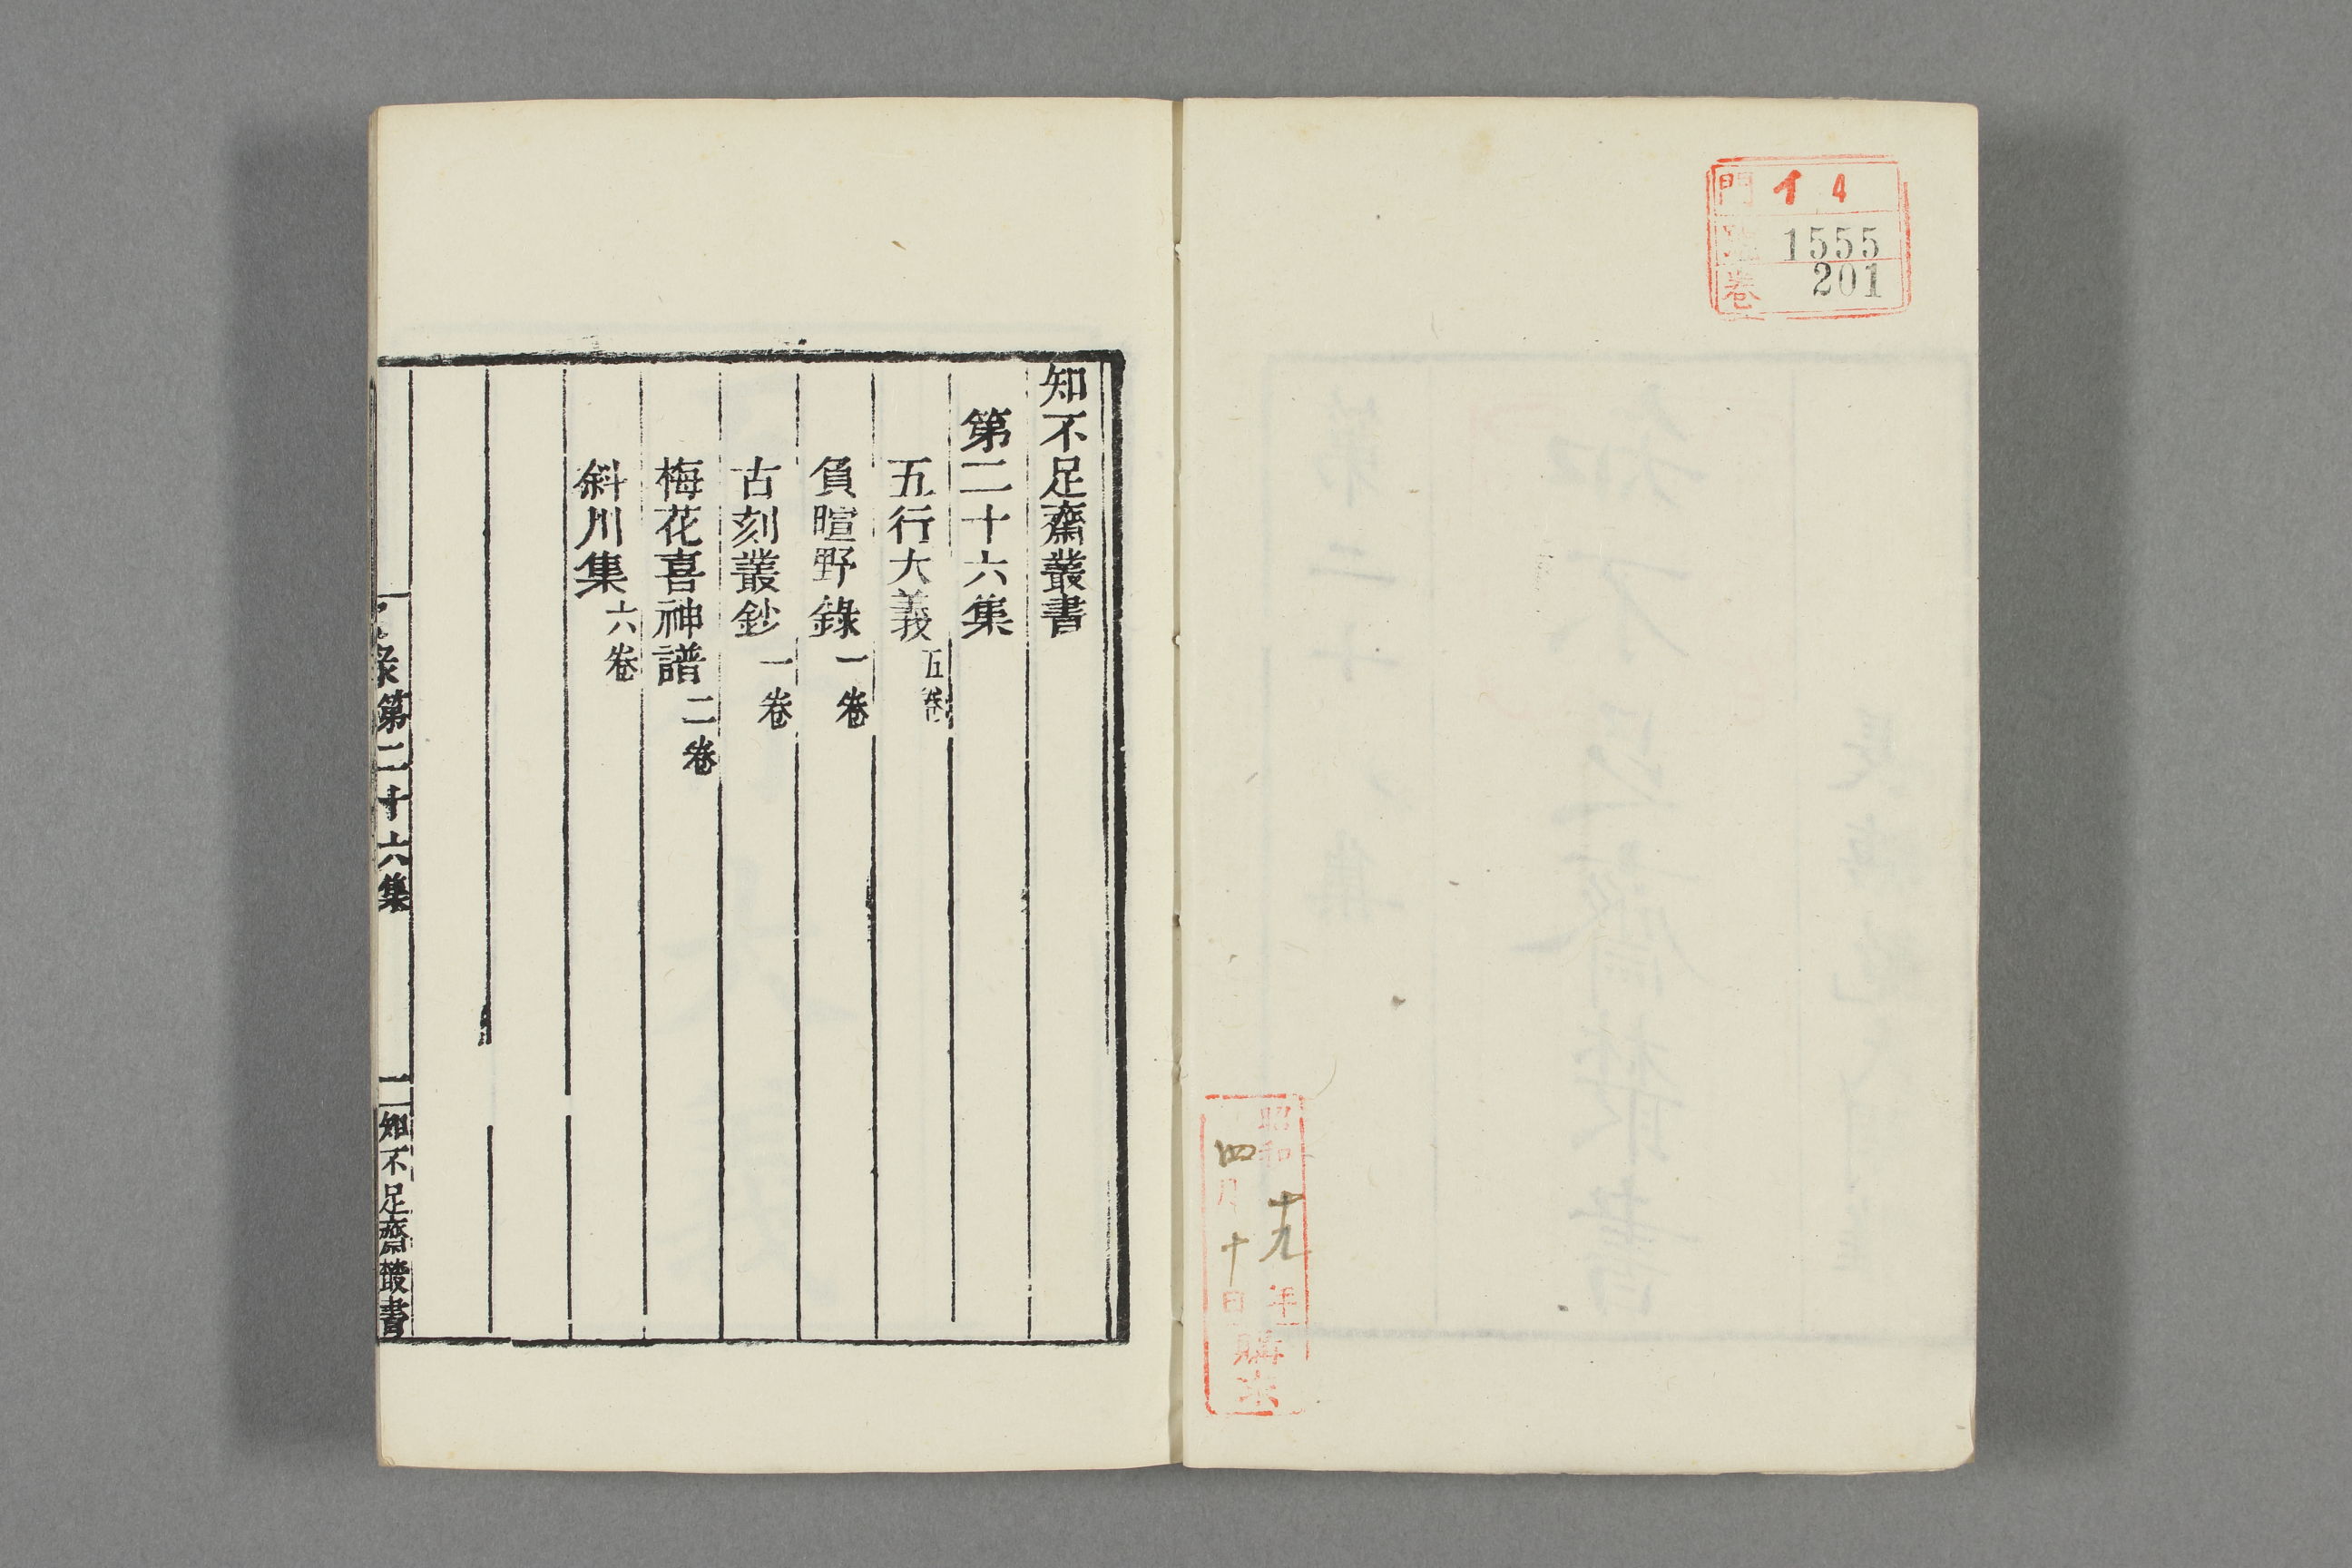 門 イ 4
號 1555
卷 201
昭和十九年
四月十日
購求
知不足齋叢書
第二十六集
五行大義五卷
負暄野錄一卷
古刻叢鈔一卷
梅花喜神譜二卷
斜川集六卷
錄第二十六集 一 知不足齋叢書